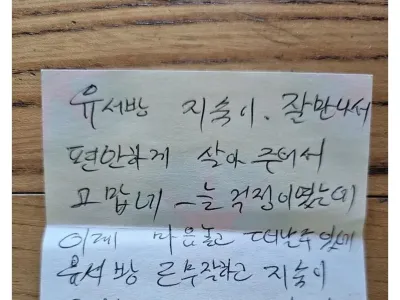 유서방 지숙이. 잘 만나서
편안하게 살아 주어서
고맙네 늘 걱정이였는데
이제 마음놓고 떠날수있네
유서방 고부장하고 지숙이